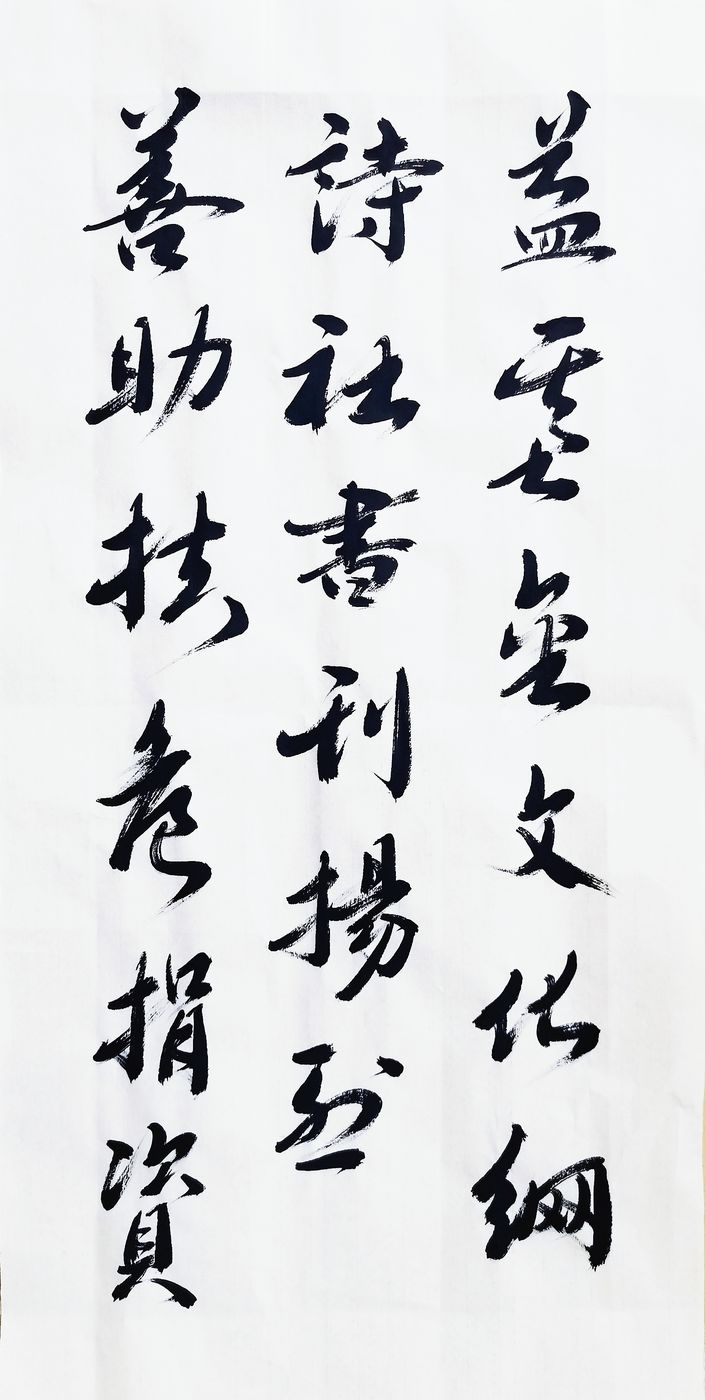 益基金文化綱
詩社書刊揚烈
善助扶危捐資